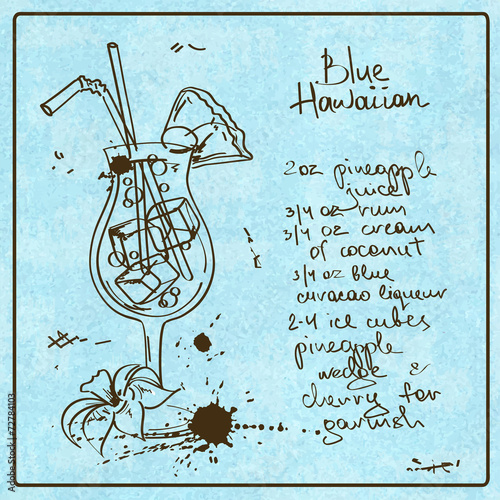 Blue
Hawaiian
2 oz pineapple
juice
3/4 oz rum
3/4 oz cream
of coconut
3/4 oz blue
curacao liqueur
2-4 ice cubes
pineapple
wedge &
cherry for
garnish
Adobe Stock | #72784103